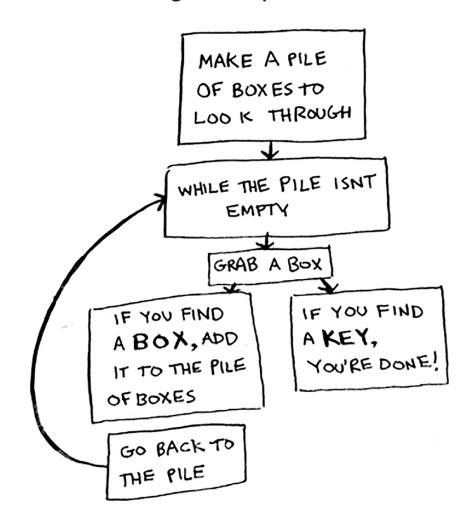 MAKE A PILE
OF BOXES TO
LOOK THROUGH
WHILE THE PILE ISNT
EMPTY
GRAB A BOX
IF YOU FIND
A BOX, ADD
IT TO THE PILE
OF BOXES
IF YOU FIND
A KEY,
YOU'RE DONE!
GO BACK TO
THE PILE